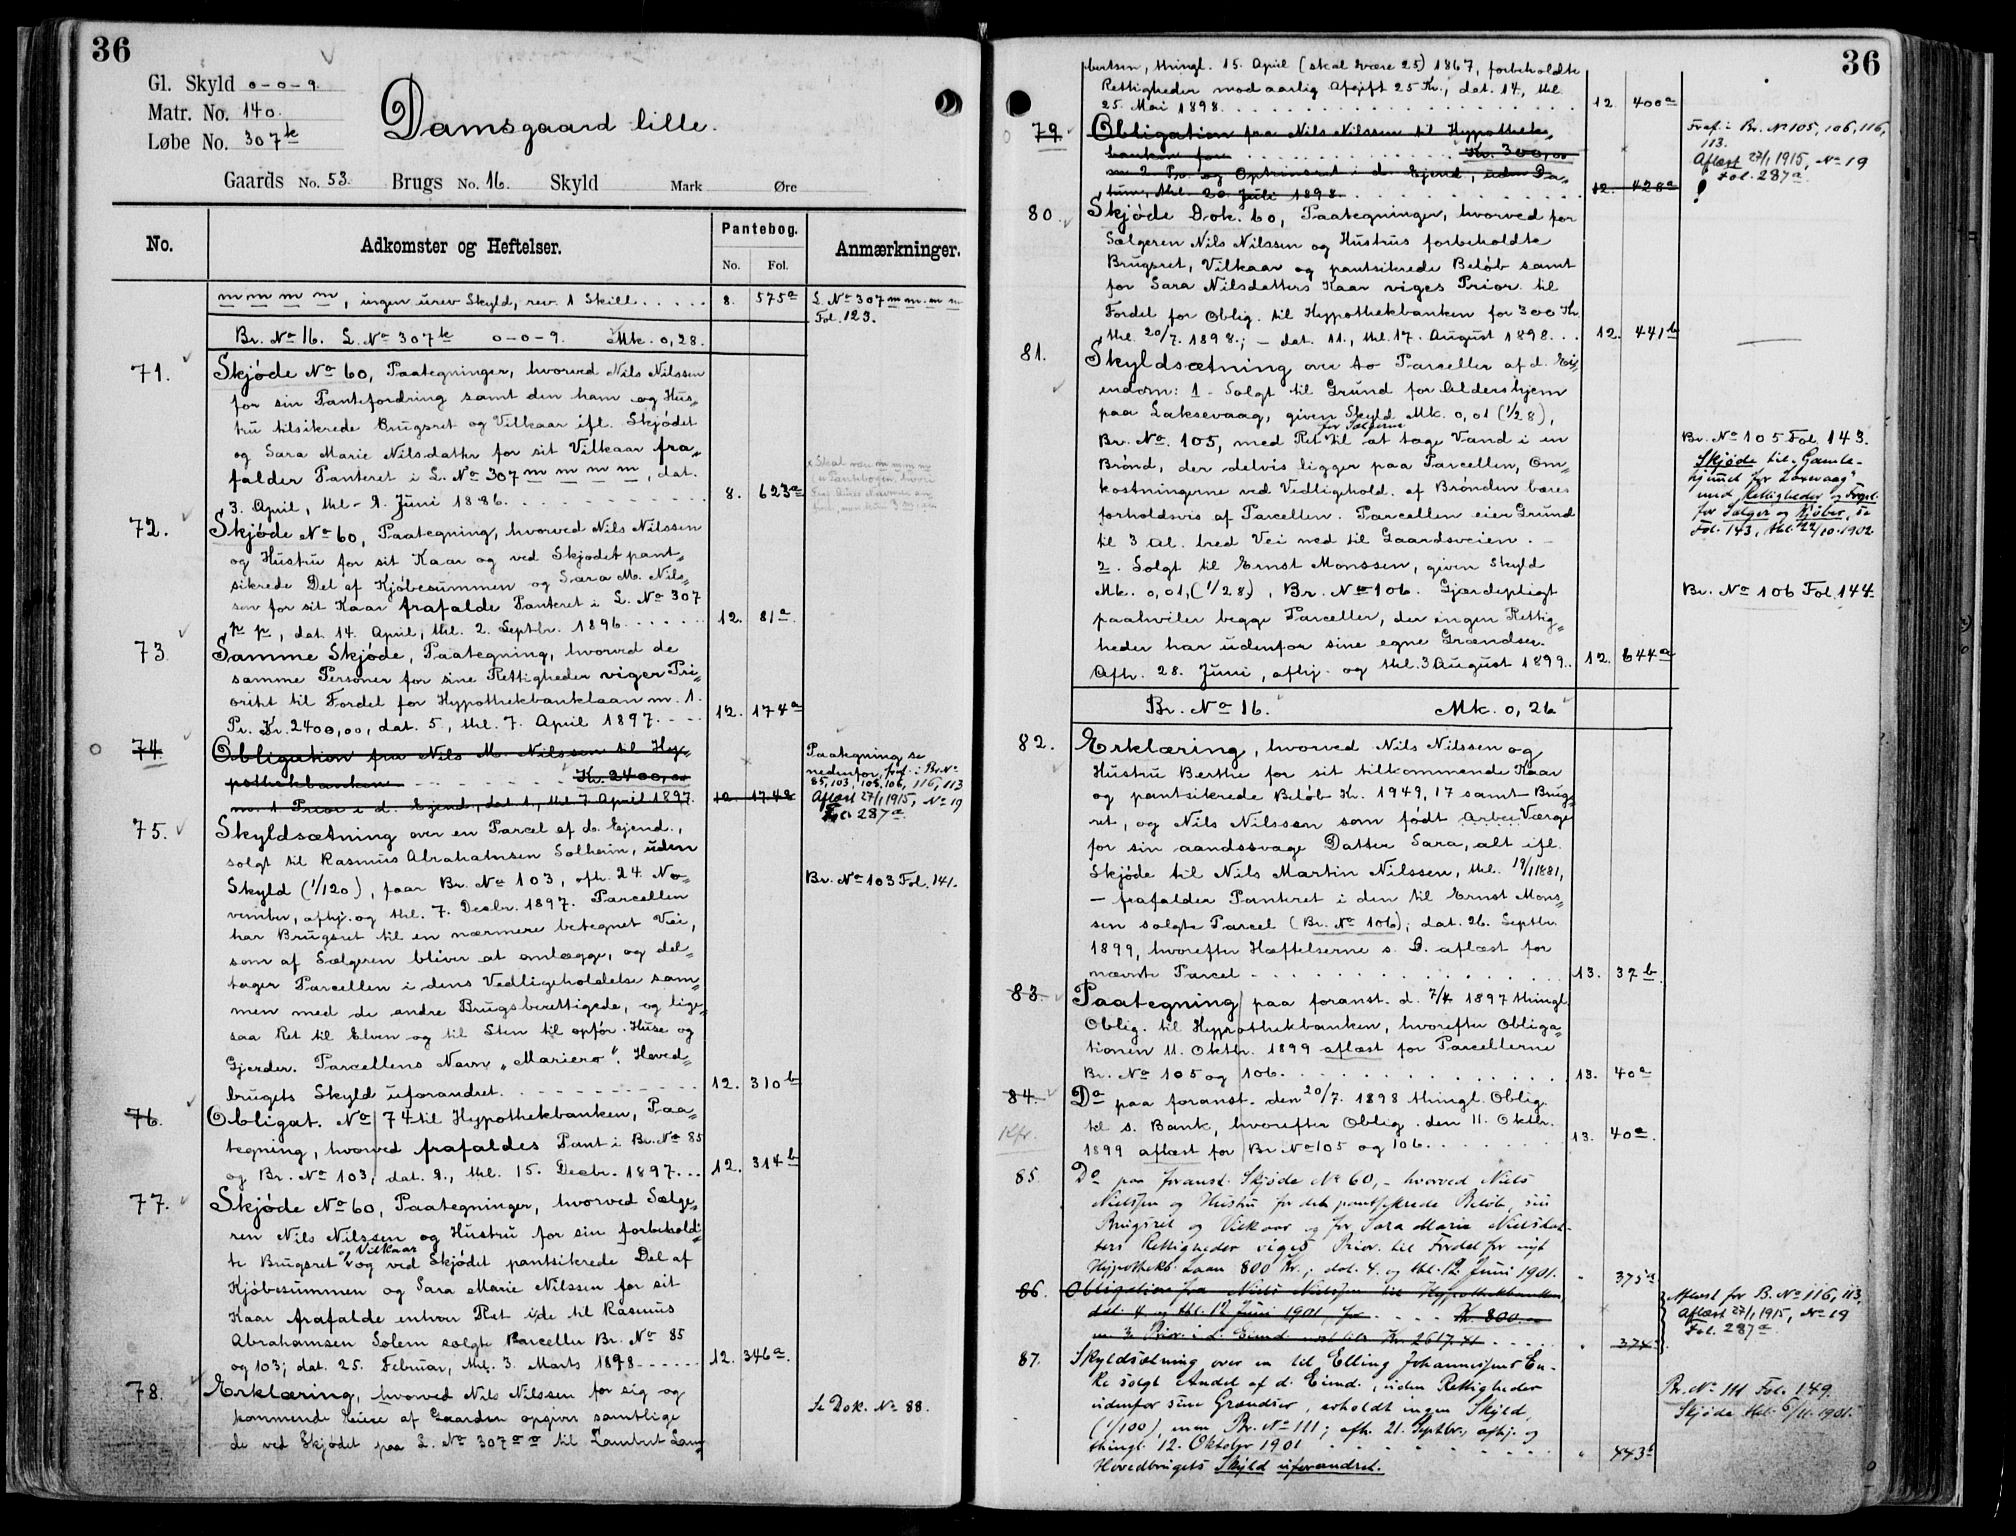 36
Gl. Skyld 0-0-9.
Matr. No. 140.
Løbe No. 307k
Damsgaard lille.
Gaards No. 53. Brugs No. 16. Skyld Mark Øre
No. Adkomster og Heftelser. Pantebog. Anmærkninger.
No. Fol.
m m m m, ingen urev Skyld, rev. 1 Skill..... 8. 575a L. No 307 m m m m
Fol. 123.
Br. No 16. L. No 307k 0-0-9. Mk. 0,28.
71. Skjøde No 60, Paategninger, hvorved Nils Nilssen
for sin Pantefordring samt den ham og Hus„
tru tilsikrede Brugsret og Vilkaar ifl. Skjødet
og Sara Marie Nilsdatter for sit Vilkaar fra„
falder Panteret i L. No 307 m m m m, dat.
3. April, thl. 2. Juni 1886. 8. 623a
72. Skjøde No 60, Paategning, hvorved Nils Nilssen
og Hustru for sit Kaar og ved Skjødet pant„
sikrede Del af Kjøbesummen og Sara M. Nils„
sen for sit Kaar frafalde Panteret i L. No 307
p p, dat. 14. April, thl. 2. Septbr. 1896...... 12. 81a.
73. Samme Skjøde, Paategning, hvorved de
samme Personer for sine Rettigheder viger Pri„
oritet til Fordel for Hypothekbanklaan m. 1.
Pr. Kr. 2400,00, dat. 5., thl. 7. April 1897. 12. 174a
74. Obligation fra Nils M. Nilssen til Hy„
pothekbanken Kr. 2400,00
m. 1 Prior i d. Ejend., dat. 1., thl. 7 April 1897. 12. 174b
Paategning se
nedenfor, fraf. i Br. No
85, 103, 105, 106, 116, 113
Aflæst 27/1 1915, No 19
Fol 287a.
75. Skyldsætning over en Parcel af do. Ejend.,
solgt til Rasmus Abrahamsen Solheim, uden
Skyld (1/120), faar Br. No 103, afh. 24. No„ Br. No 103 Fol. 141.
vember, afhj. og thl. 7. Decbr. 1897. Parcellen
har Brugsret til en nærmere betegnet Vei,
som af Sælgeren bliver at omlægge, og del„
tager Parcellen i dens Vedligeholdelse sam„
men med de andre Brugsberettigede, og lige„
saa Ret til Elven og til Sten til opfør. Huse og
Gjerder. Parcellens Navn „Mariero". Hoved„
brugets Skyld uforandret. 12. 310b
76. Obligat. No 74 til Hypothekbanken, Paa„
tegning, hvorved frafaldes Pant i Br. No 85
og Br. No 103, dat. 2., thl. 15. Decbr. 1897... 12. 314b
77. Skjøde No 60, Paategninger, hvorved Sælge„
ren Nils Nilssen og Hustru for sin forbehold„
te Brugsret og Vilkaar og ved Skjødet pantsikrede Del af
Kjøbesummen og Sara Marie Nilssen for sit
Kaar frafalde enhver Ret i de til Rasmus
Abrahamsen Solem solgte Parceller Br. No 85
og 103; dat. 25. Februar, thl. 3. Marts 1898 12. 346a.
78. Erklæring, hvorved Nils Nilssen for sig og
kommende Eiere af Gaarden opgiver samtlige Se Dok. No 88.
de ved Skjødet paa L. No 307 o o til Lambert Lam„
36
bertsen, thingl. 15. April (skal være 25) 1867, forbeholdte
Rettigheder mod aarlig Afgift 25 Kr., dat. 14, thl.
25. Mai 1898. 12. 400a
79. Obligation fra Nils Nilssen til Hypothek„
banken for Kr. 300,00
m 2 Pr. og Optrinsret i do. Ejend., uden Da„
tum, thl. 20. Juli 1898. 12. 428a
Fraf. i Br. No 105, 106, 116,
113.
Aflæst 27/1 1915, No 19
Fol. 287a
80. Skjøde Dok. 60, Paategninger, hvorved for
Sælgeren Nils Nilssen og Hustrus forbeholdte
Brugsret, Vilkaar og pantsikrede Beløb samt
for Sara Nilsdatters Kaar viges Prior. til
Fordel for Oblig. til Hypothekbanken for 300 Kr.
thl. 20/7. 1898.; – dat. 11., thl. 17. August 1898... 12. 441b
81. Skyldsætning over to Parceller af d. Ei„
endom: 1. Solgt til Grund for Aldershjem
paa Laksevaag, given Skyld Mk. 0,01 (1/28),
Br. No. 105, med Ret for Sælgeren til at tage Vand i en
Brønd, der delvis ligger paa Parcellen, Om„
kostningerne ved Vedligehold. af Brønden bæres
forholdsvis af Parcellen. Parcellen eier Grund
til 3 Al. bred Vei ned til Gaardsveien. –
Br. No 105 Fol. 143.
Skjøde til „Gamle-
hjemmet for Laxevaag"
med Rettigheder og Forpl.
for Sælger og Kjøber, se
Fol. 143, thl. 22/10. 1902
2. Solgt til Ernst Monssen, given Skyld
Mk. 0,01, (1/28), Br. No 106. Gjærdepligt Br. No 106 Fol. 144.
paahviler begge Parceller, der ingen Rettig„
heder har udenfor sine egne Grændser.
Afh. 28. Juni, afhj. og thl. 3 August 1899.. 12. 644a
Br. No 16. Mk. 0,26
82. Erklæring, hvorved Nils Nilssen og
Hustru Berthe for sit tilkommende Kaar
og pantsikrede Beløb Kr. 1949,17 samt Brugs„
ret, og Nils Nilssen som født Værge
for sin aandssvage Datter Sara, alt ifl.
Skjøde til Nils Martin Nilssen, thl. 19/1 1881,
– frafalder Panteret i den til Ernst Mons„
sen solgte Parcel (Br. No 106); dat. 26. Septbr.
1899, hvorefter Hæftelserne s. D. aflæst for
nævnte Parcel 13. 37b
83. Paategning paa foranst. d. 7/4 1897 thingl.
Oblig. til Hypothekbanken, hvorefter Obliga„
tionen 11. Oktbr. 1899 aflæst for Parcellerne
Br. No 105 og 106. 13. 40a
84. Do paa foranst. den 20/7. 1898 thingl. Oblig.
til s. Bank, hvorefter Oblig. den 11. Oktbr.
Kfr. 1899 aflæst for Br No 105 og 106. 13. 40a.
85. Do paa foranst. Skjøde No 60, – hvorved Niels
Nielssen og Hustru for det pantsikrede Beløb, sin
Brugsret og Vilkaar og for Sara Marie Nielsdat-
ters Rettigheder viges Prior. til Fordel for nyt
Hypotheks Laan 800 Kr.; dat. 4. og thl. 12. Juni 1901. " 375a
86. Obligation fra Niels Nielssen til Hypothekbanken,
dat. 4 og thl. 12 Juni 1901, for Kr. 800.00
m 3 Prior. i d. Eiend. Kr. 2617,41 " 374
Aflæst for B. No 116, 113,
Aflæst 27/1 1915, No 19
Fol. 287a
87. Skyldsætning over en til Elling Johannessens En-
ke solgt Andel af d. Eiend., uden Rettigheder
udenfor sine Grændser, erholdt ingen Skyld
(1/100), men Br. No 111; afh. 21. Septbr., afhj. og
thingl. 12. Oktober 1901. " 443b
Hovedbrugets Skyld uforandret.
Br. No 111 Fol. 149.
Skjøde thl. 6/11. 1901.